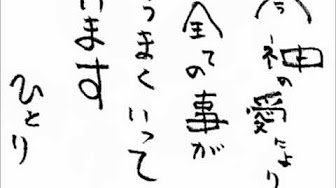 神の愛により
全ての事が
うまくいって
ます
ひとり